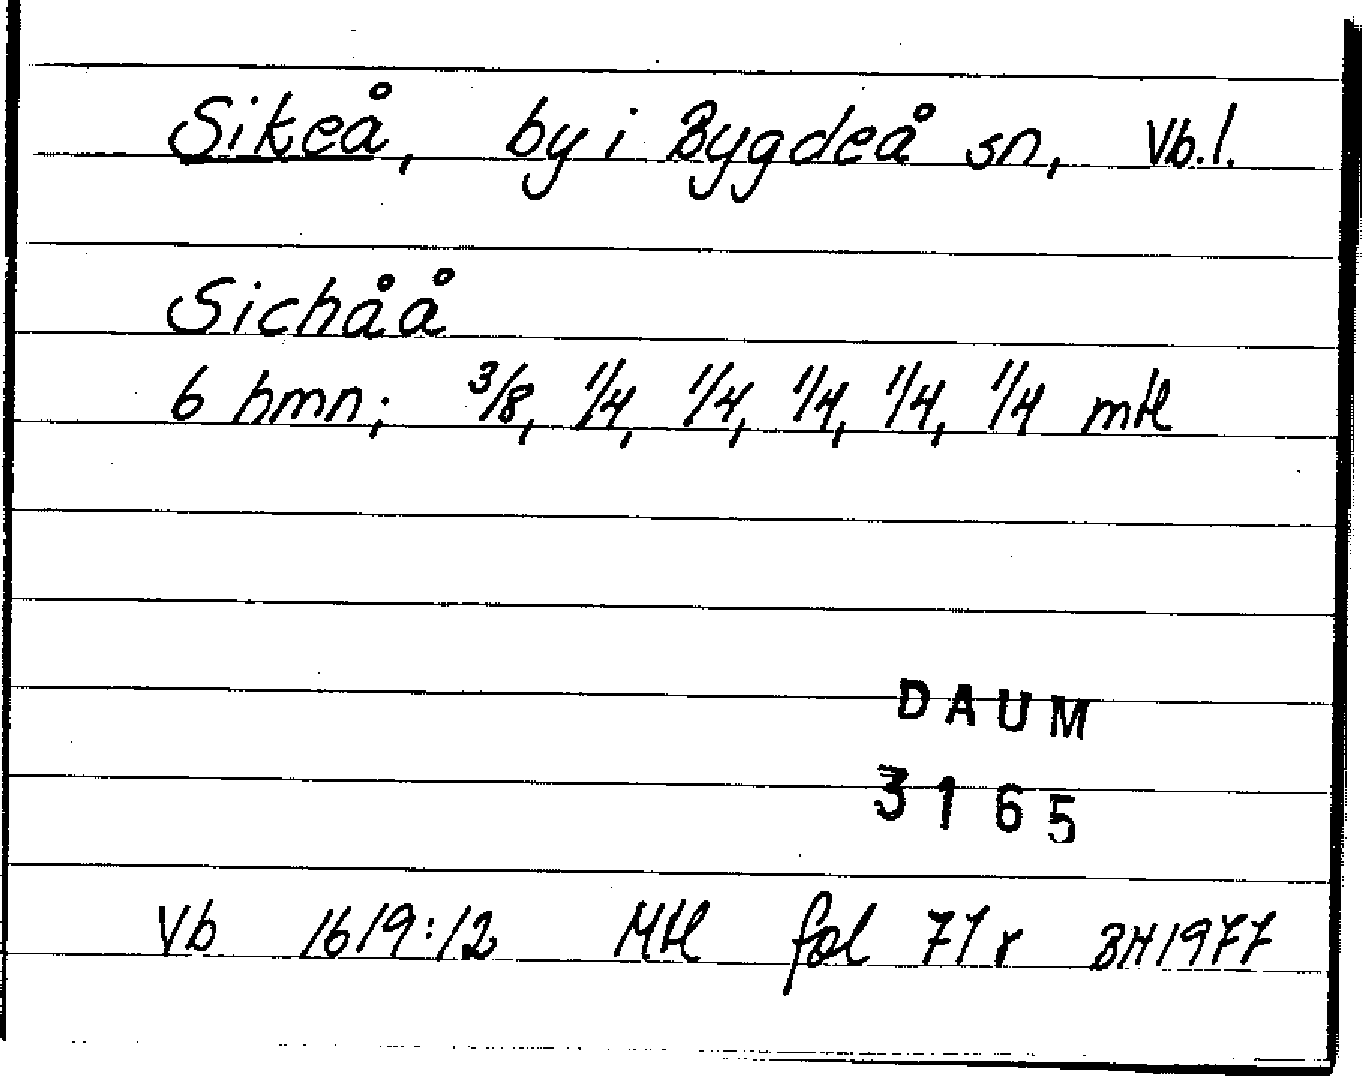 Sikeå, by i Bygdeå sn, Vb.l.
Sichåå
6 hmn; 3/8, 1/4, 1/4, 1/4, 1/4, 1/4 mtl
DAUM
3165
Vb 1619:12 Mtl fol 71 r BH 1977